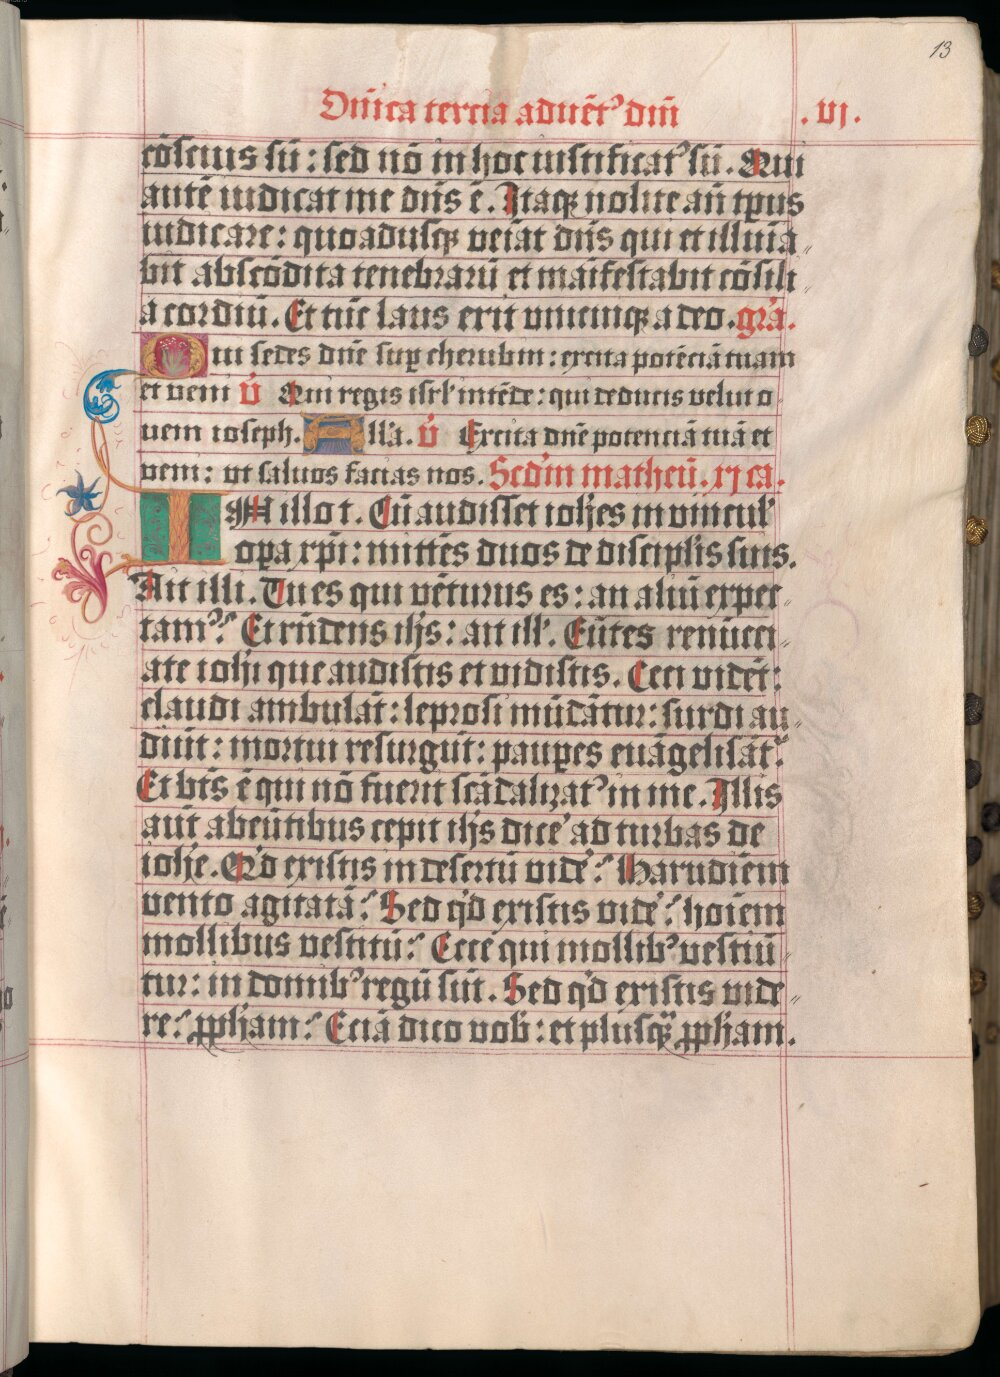 13
Dn̄ica tercia aduēt⁹ dn̄i .vj.
cōscius sū : sed nō in hoc iustificat⁹ sū . Qui
autē iudicat me dn̄s ē . Itaqꝫ nolite an̄ tp̄us
iudicare : quoadusqꝫ veīat dn̄s qui et illuīa〃
bit abscōdita tenebrarū et māifestabit cōsili〃
a cordiū . Et tūc laus erit vnicuiqꝫ a deo . gr̄a.
Qui sedes dn̄e suꝑ cherubin : excita potēciā tuam
et veni V̄ Qui regis isrl̓ intēde : qui deducis velut o〃
uem ioseph. All̓a. V̄ Excita dn̄e potenciā tuā et
veni : vt saluos facias nos. Scd̓m matheū . xj ca.
IN illo t. Cū audisset ioh̄es in vincul̓
oꝑa xp̄i : mittēs duos de discipl̄is suis.
Ait illi . Tu es qui vēturus es : an aliū expec〃
tam⁹? Et rn̄dens ih̄s : ait ill̓. Eūtes renūcci〃
ate ioh̄i que audistis et vidistis. Ceci vidēt :
claudi ambulāt : leprosi mūdātur : surdi au〃
diūt : mortui resurgūt : pauꝑes euāgelisāt᷑.
Et bt̄s ē qui nō fuerit scādalizat⁹ in me . Illis
aūt abeūtibus cepit ih̄s dice᷑ ad turbas de
ioh̄e . Qͥd existis in desertū vide᷑ ? Harūdiēm
vento agitatā ? Sed qͥd existis vide᷑ ? hoīem
mollibus vestitū ? Ecce qui mollib⁹ vestiū〃
tur : in domib⁹ regū sūt . Sed qͥd existis vide〃
re ? ꝓph̄am ? Eciā dico vob̓ : et plusqꝫ ꝓph̄am.